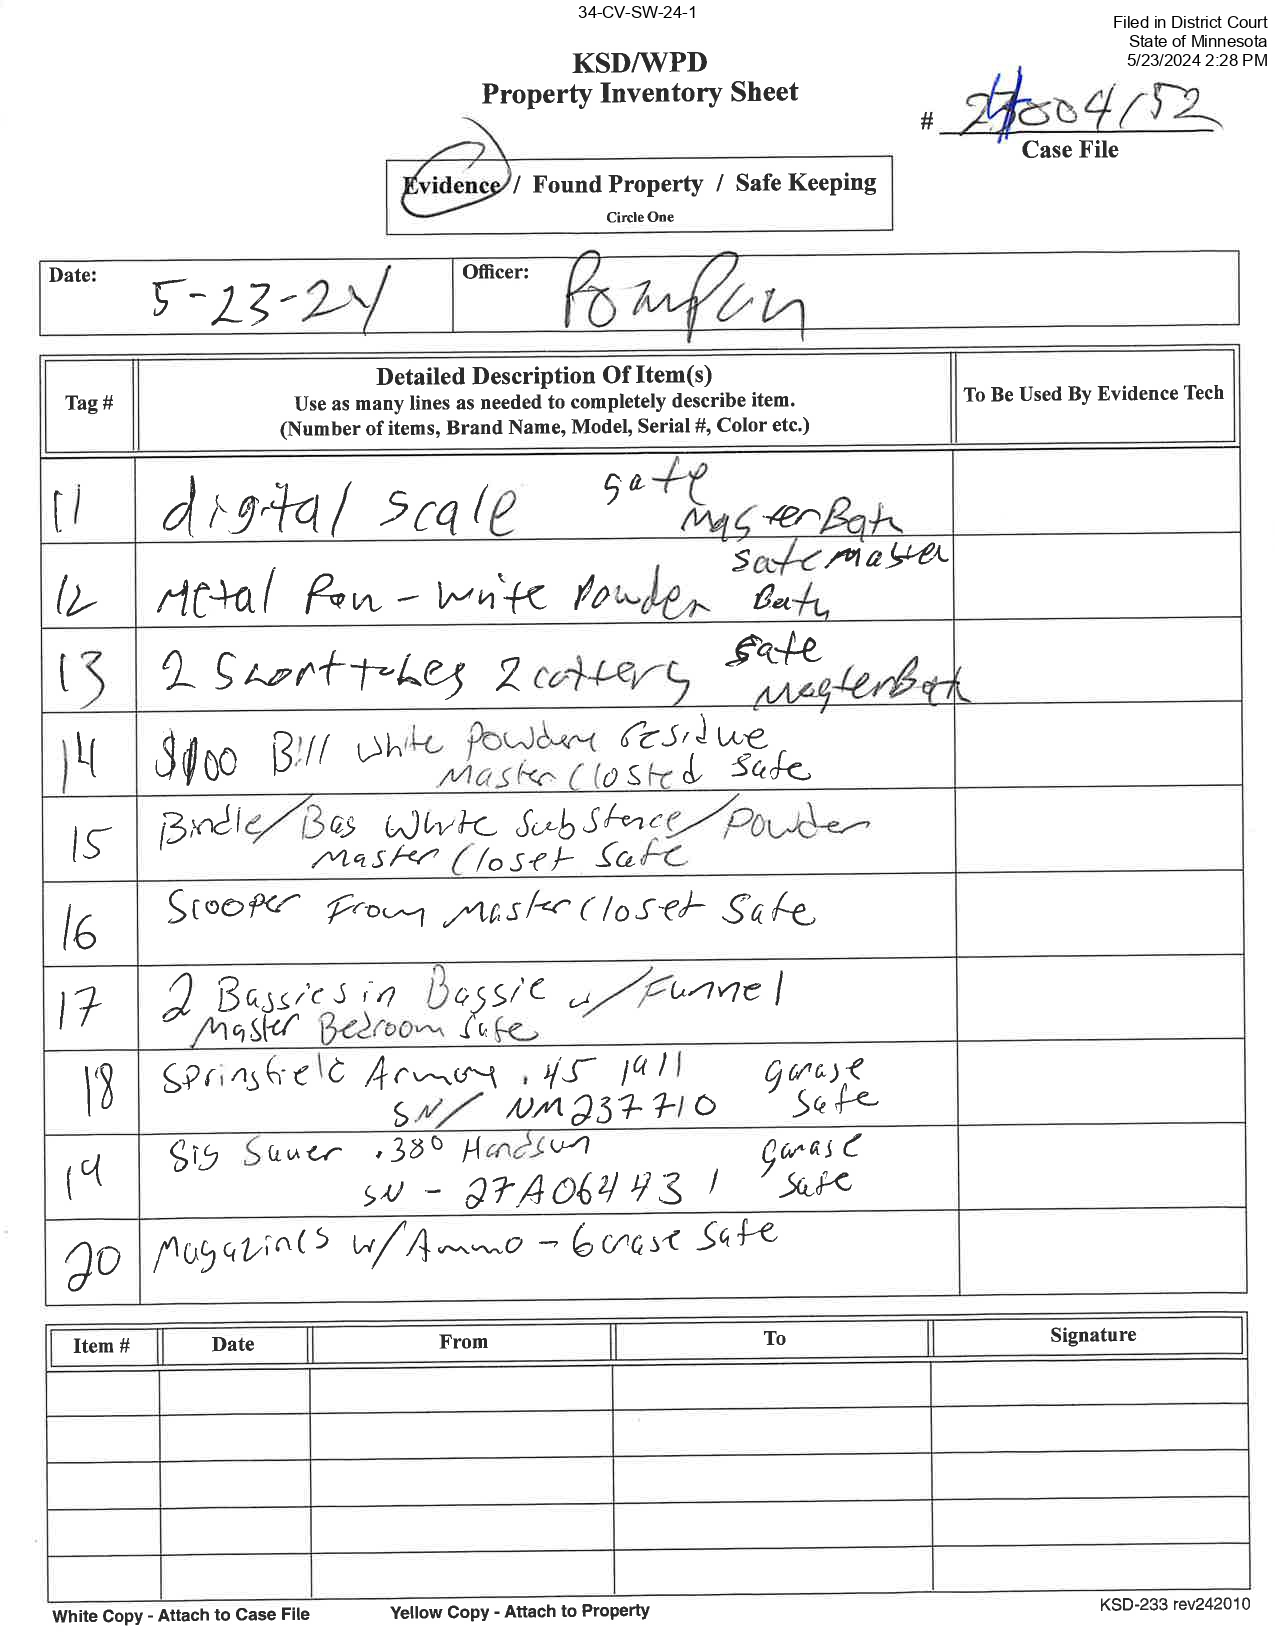 34-CV-SW-24-1
Filed in District Court
State of Minnesota
5/23/2024 2:28 PM
KSD/WPD
Property Inventory Sheet
# 24004152
Case File
Evidence / Found Property / Safe Keeping
Circle One
Date: 5-23-24 Officer:
Tag # Detailed Description Of Item(s) To Be Used By Evidence Tech
Use as many lines as needed to completely describe item.
(Number of items, Brand Name, Model, Serial #, Color etc.)
11 digital scale safe
Master Bath
12 Metal Pan - White Powder safe Master
Bath
13 2 Short tubes 2 cutters safe
Master Bath
14 $100 Bill White Powdery residue
Master Closted Safe
15 Bindle/Bag White Substence/Powder
Master Closet Safe
16 Scooper From Master Closet Safe
17 2 Baggies in Baggie w/Funnel
Master Bedroom Safe
18 Springfield Armory .45 1911 garage
SN/ NM237710 Safe
19 Sig Sauer .380 Handgun garage
SN - 27A064431 Safe
20 Magazines w/Ammo - Garage Safe
Item # Date From To Signature
White Copy - Attach to Case File Yellow Copy - Attach to Property KSD-233 rev242010